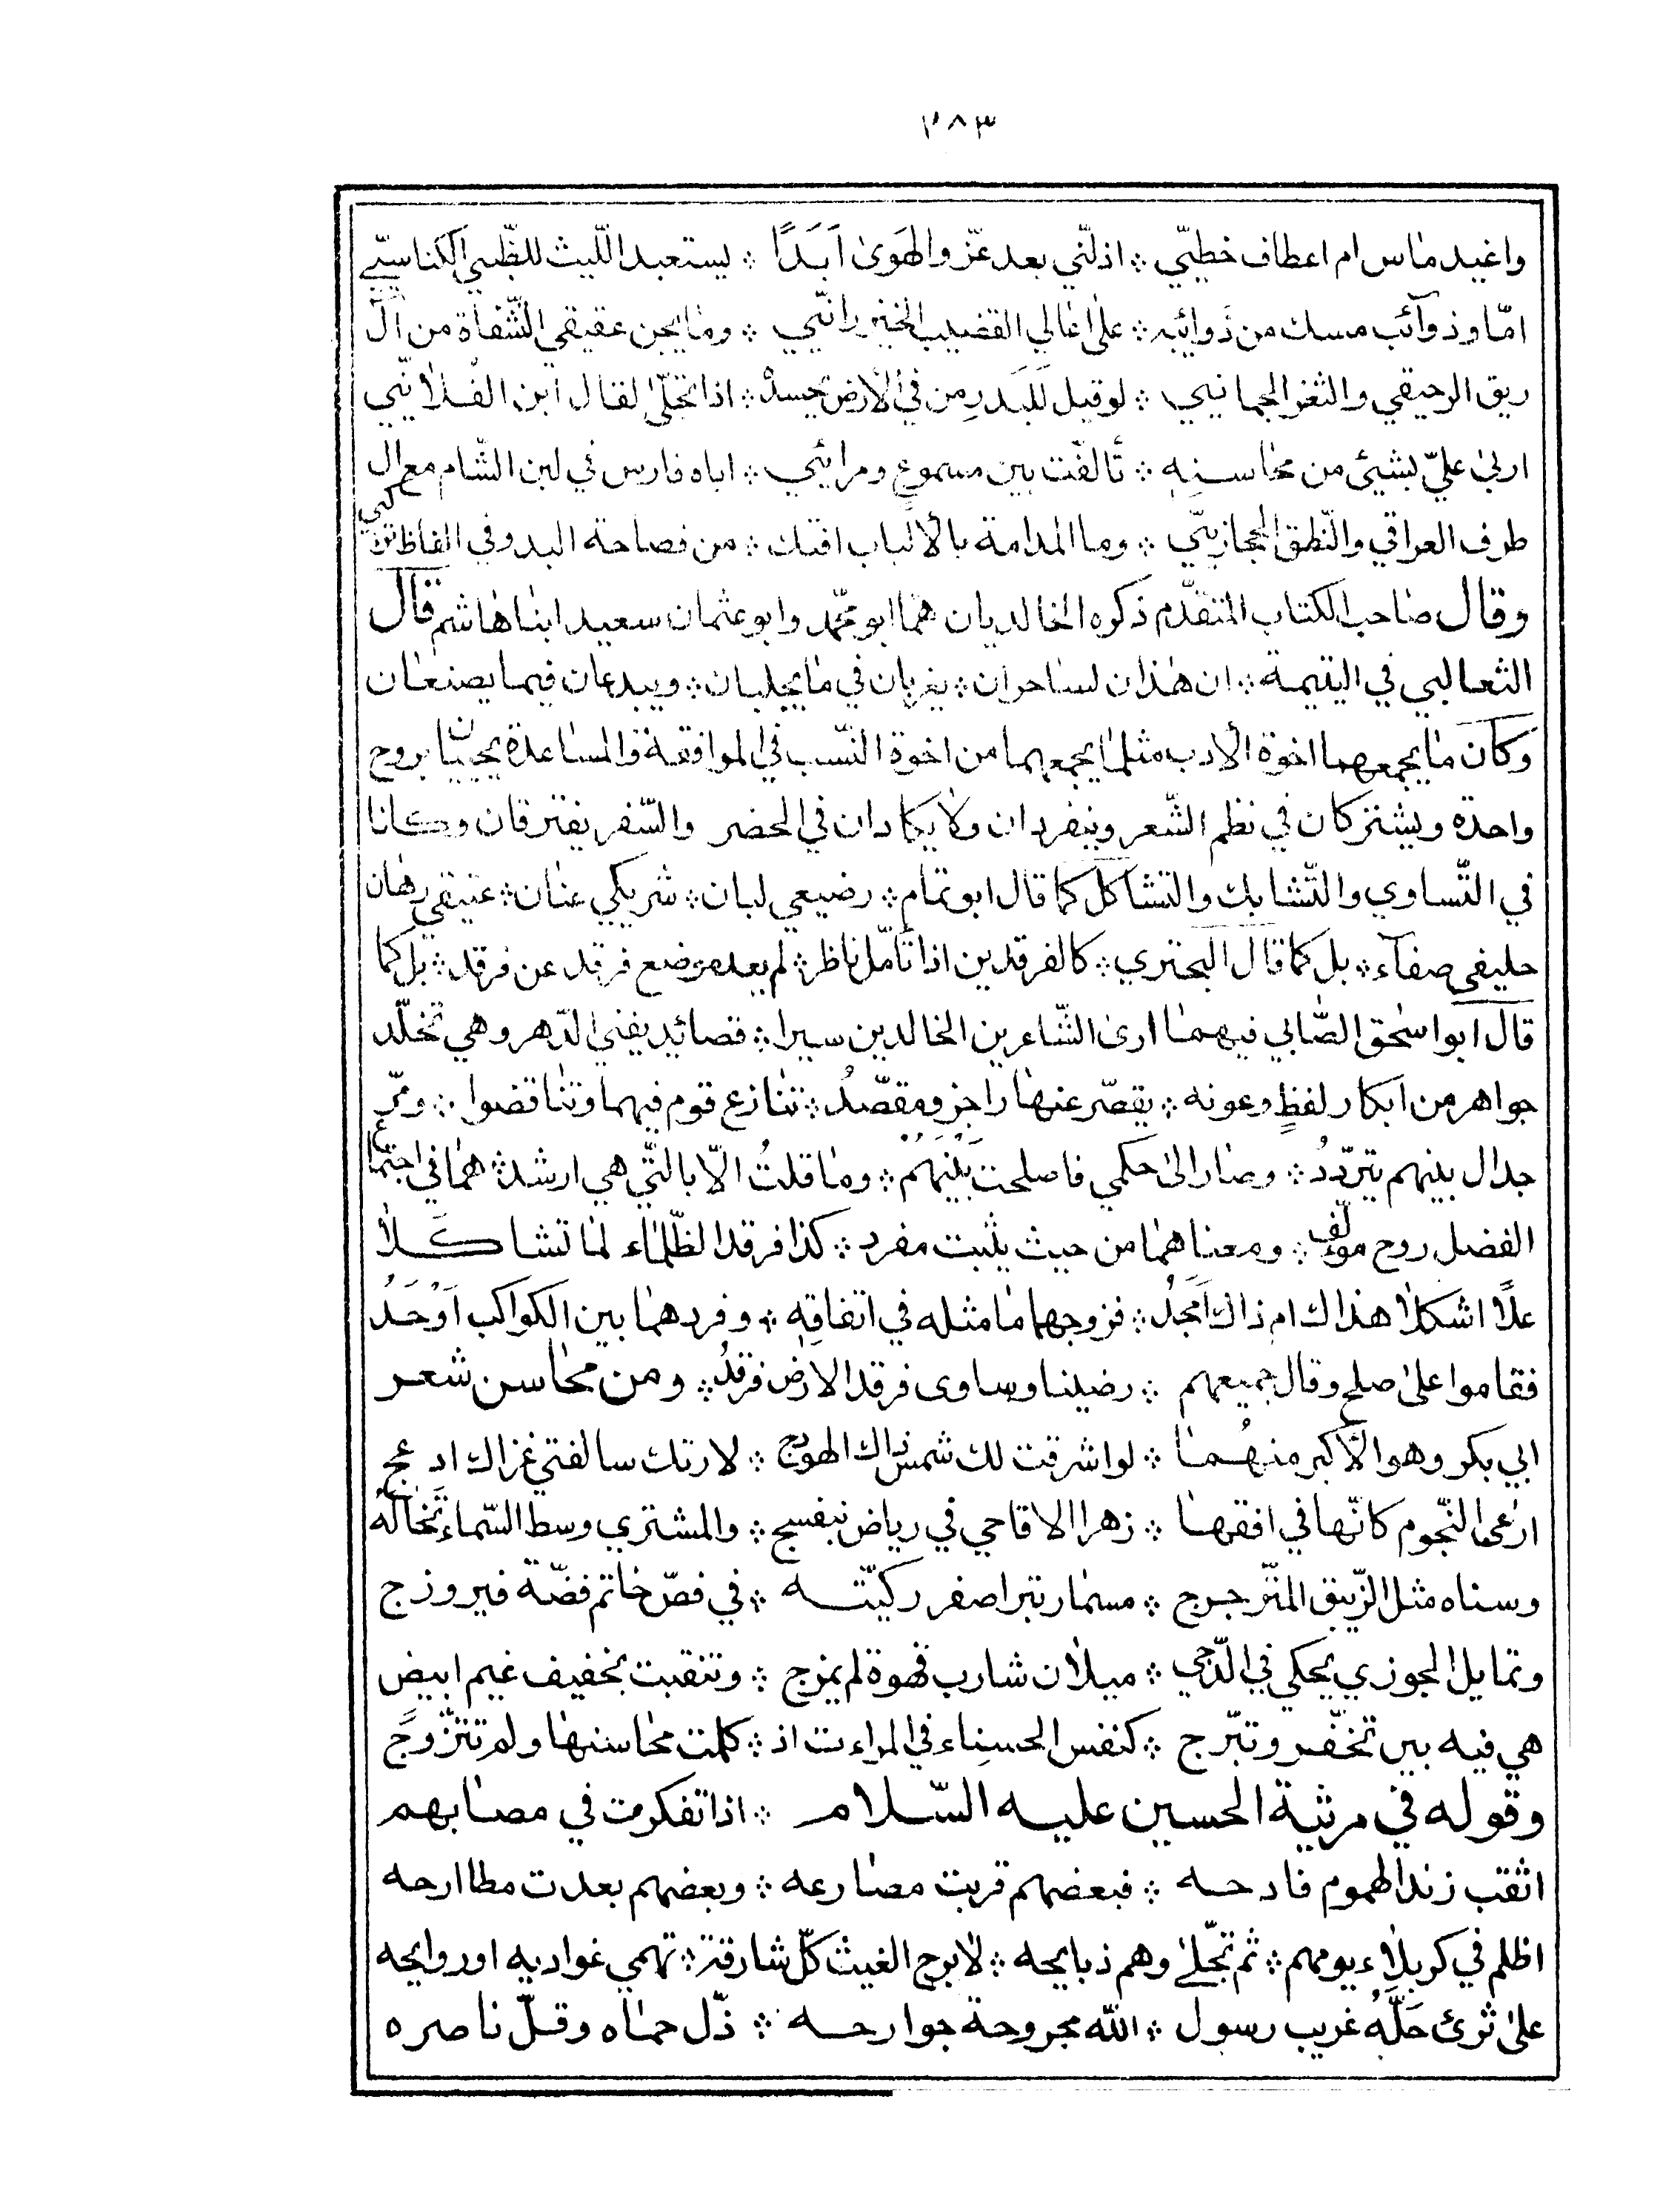 ٢٨٣
واغيد ماس ام اعطاف خطيّي ⁘ اذلّني بعد عزّ والهَوىٰ اَبَدًا ⁘ يستعبد اللّيث للظّبي الكناسيّي
امّا وذوآئب مسك من ذوائبه ⁘ علىٰ اعالي القضيب الخيزرانيّي ⁘ وما يجن عقيقي الشّفاة من ال
ريق الرحيقي والثغر الجمانيي ⁘ لو قيل لِلبَدرِ من في الأرض تحسدُ ⁘ اذا تجلّىٰ لقال ابن الفلانيّي
اربىٰ عليّ بشيئ من محاسنهِ ⁘ تألفت بين مسموعٍ ومرائي ⁘ اباه فارس في لين الشّام مع ال
طرف العراقي والنّطق الحجازيّي ⁘ وما المدامة بالألباب افتك ⁘ من فصاحة البدو في الفاظ تركي
وقال صاحب الكتاب المتقدّم ذكره الخالديان هما ابو محمّد وابو عثمان سعيد ابنا هاشم قال
الثعالبي في اليتيمة ⁘ ان هذان لساحران ⁘ يغربان في ما يجلبان ⁘ ويبدعان فيما يصنعان
وكان ما يجمعهما اخوة الأدب مثلما يجمعهما من اخوة النّسب في الموافقة والمساعدة يحييان بروح
واحدة ويشتركان في نظم الشّعر وينفردان ولا يكادان في الحضر والسّفر يفترقان وكانا
في التّساوي والتّشابك والتشاكل كما قال ابو تمام ⁘ رضيعي لبان ⁘ شريكي عنان ⁘ عتيقي رهان
حليفي صفآء ⁘ بل كما قال البحتري ⁘ كالفرقدين اذا تأمّل ناظر ⁘ لم يعد موضع فرقد عن فرقد ⁘ بل كما
قال ابو اسحٰق الصّابي فيهما ارى الشّاعرين الخالدين سيرا ⁘ قصائد يفنىٰ الدّهر وهي تخلّد
جواهر من ابكار لفظٍ وعونه ⁘ يقصّر عنها راجز ومقصّدُ ⁘ تنازع قوم فيهما وتناقضوا ⁘ ومرّ
جدال بينهم يتردّدُ ⁘ وصار الىٰ حكمي فاصلحت بَيْنَهُمْ ⁘ وما قلتُ الّا بالتي هي ارشد ⁘ هما في اجتماع
الفضل روح مؤلّف ⁘ ومعناهما من حيث يثبت مفرد ⁘ كذا فرقد الظّلماء لما تشاكلا
علًا اشكلا هذاك ام ذاك اَمجدُ ⁘ فزوجهما ما مثله في اتفاقهِ ⁘ وفردهما بين الكواكب اَوْحَدُ
فقاموا علىٰ صلحٍ وقال جميعهم ⁘ رضينا وساوى فرقد الارض فرقدُ ⁘ ومن محاسن شعر
ابي بكر وهو الأكبر منهُما ⁘ لو اشرقت لك شمس ذاك الهودج ⁘ لارتك سالفتي غزاك ادعج
ارعى النّجوم كانّها في افقها ⁘ زهر الاقاحي في رياض بنفسج ⁘ والمشتري وسط السّماء تَخالُهُ
وسناه مثل الزّيبق المترجرج ⁘ مسمار تبر اصفر ركبّته ⁘ في فصّ خاتم فضّة فيروزج
وتمايل الجوزي يحكي في الدّجي ⁘ ميلان شارب قهوة لم يمزج ⁘ وتنقبت بخفيف غيم ابيضٍ
هي فيه بين تخفّر وتبرّج ⁘ كنفس الحسناء في المراءت اذ ⁘ كملت محاسنها ولم تتزّوج
وقوله في مرثية الحسين عليه السّلام ⁘ اذا تفكرت في مصابهم
اثقب زند الهموم فادحه ⁘ فبعضهم قربت مصارعه ⁘ وبعضهم بعدت مطاارحه
اظلم في كربلاء يومهم ⁘ ثم تجّلىٰ وهم ذبايحه ⁘ لابرح الغيث كلّ شارقة ⁘ تهمي غواديه او روايحه
علىٰ ثرىٰ حَلَّهُ غريب رسول ⁘ الله مجروحة جوارحه ⁘ ذّل حماه وقلّ ناصره